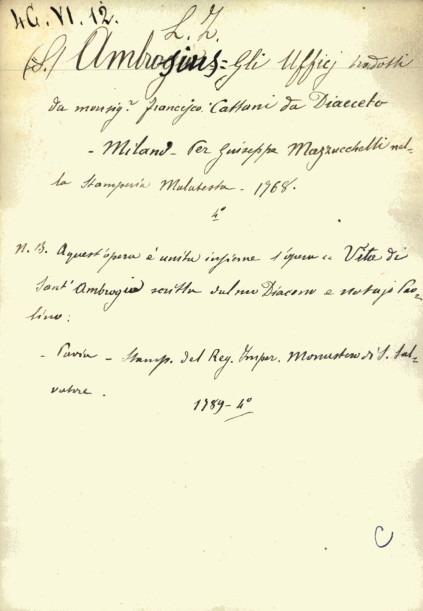 4G. VI. 12.
L. Z.
(S.) Ambrosius = Gli Ufficj tradotti
da monsig.r Francesco Cattani da Diacceto
- Milano - Per Giuseppe Mazzucchelli nel-
la Stamperia Malatesta - 1768.
4°
N. B. A quest'opera è unita insieme l'opera = Vita di
Sant'Ambrogio scritta dal suo Diacono e notajo Pao-
lino:
- Pavia - Stamp. del Reg. Imper. Monastero di S. Sal-
vatore.
1789 - 4°
C